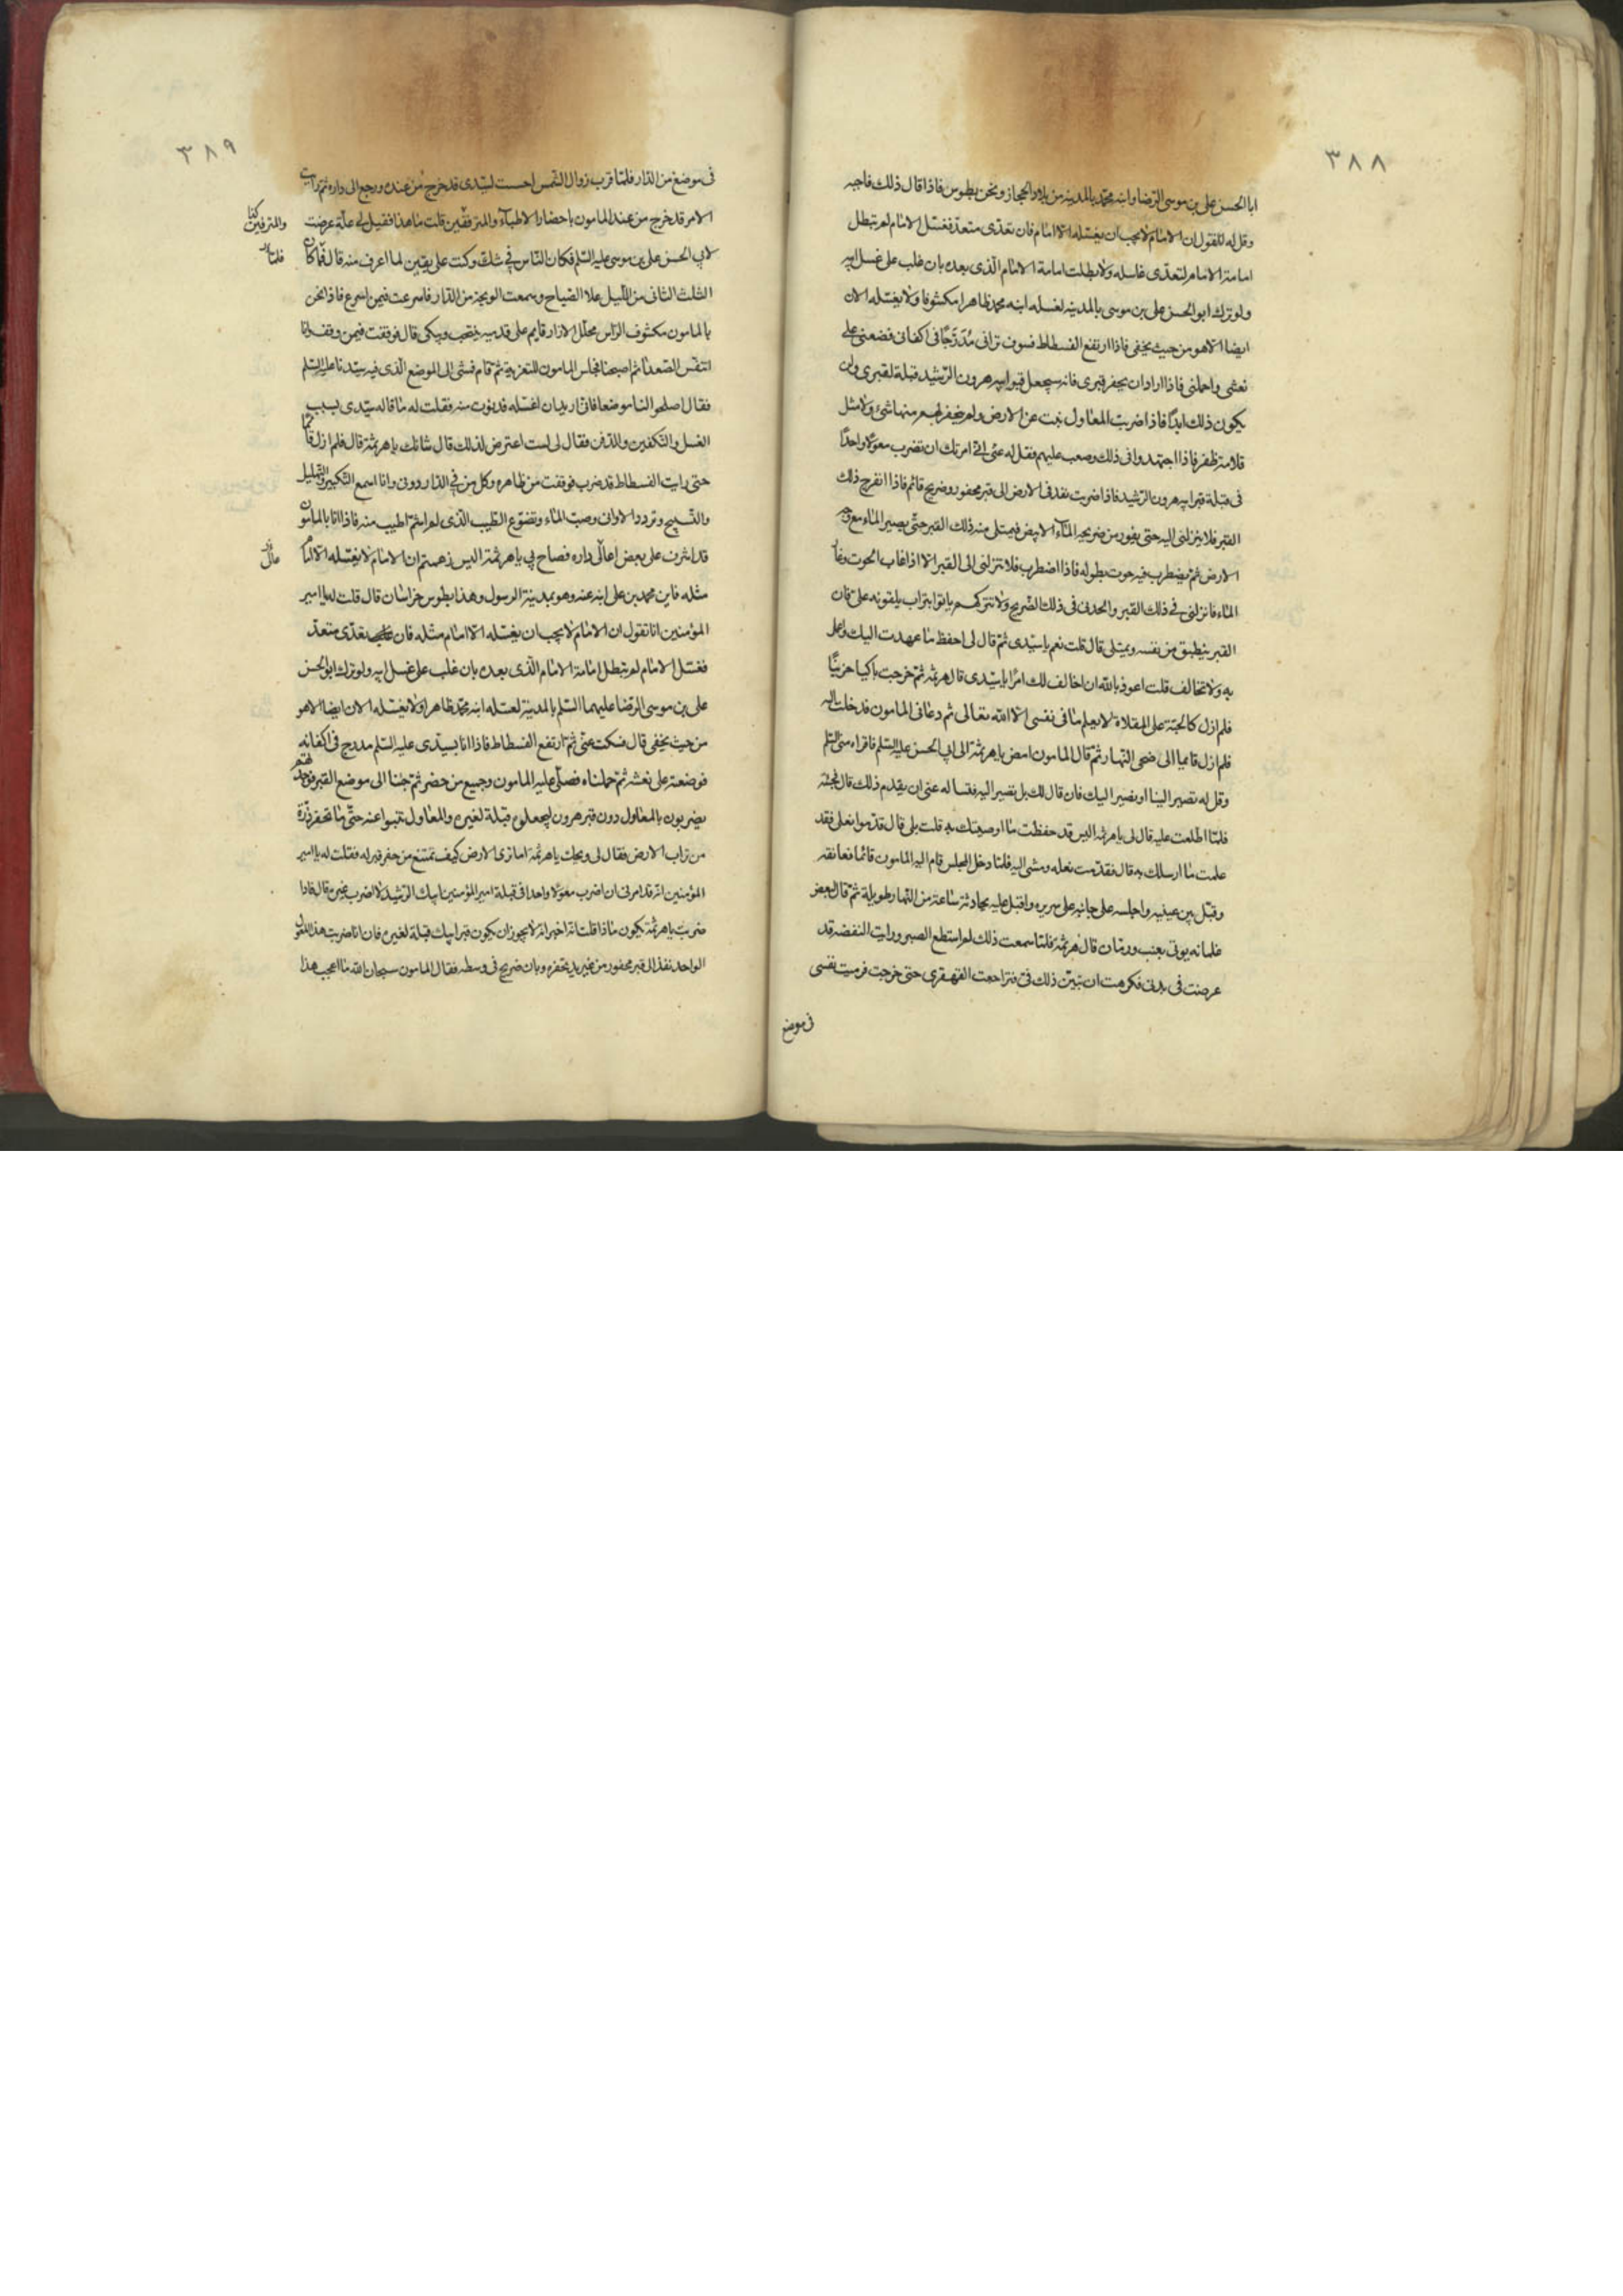 ٣٨٨
ابا الحسن على بن موسى الرضا وابنه محمد بالمدينه من بلاد الحجاز ونحن بطوس فاذا قال ذلك فاجبه
وقل له انا نقول ان الامام لا يجب ان يغسله الا امام فان تعدى متعد فغسل الامام لم تبطل
امامة الامام لتعدى غاسله ولا بطلت امامة الامام الذى بعده بان غلب على غسل ابيه
ولو ترك ابو الحسن على بن موسى بالمدينه لغسله ابنه محمد ظاهرا مكشوفا ولا يغسله الان
ايضا الا هو من حيث يخفى فاذا ارتفع الفسطاط فسوف ترانى مُدَرَّجًا فى اكفانى فضعنى على
نعشى واحملنى فاذا اراد ان يحفر قبرى فانه سيجعل قبر ابيه هرون الرشيد قبلة لقبرى ولن
يكون ذلك ابدًا فاذا ضربت المعاول نبت عن الارض ولم ينحفر لهم منها شئ ولا مثل
قلامة ظفر فاذا اجتهدوا فى ذلك وصعب عليهم فقل له عنى انى امرتك ان تضرب معولا واحدًا
فى قبلة قبر ابيه هرون الرشيد فاذا ضربت نفد فى الارض الى قبر محفور وضريح قائم فاذا انفرج ذلك
القبر فلا ينزلنى اليه حتى يفور من ضريحه الماء الابيض فيمتلى منه ذلك القبر حتى يصير الماء مع وجه
الارض ثم يضطرب فيه حوت بطوله فاذا اضطرب فلا تنزلنى الى القبر الا اذا غاب الحوت وغار
الماء فانزلنى فى ذلك القبر والحدنى فى ذلك الضريح ولا تتركهم ياتوا بتراب يلقونه على فان
القبر ينطبق من نفسه ويمتلى قال قلت نعم يا سيدى ثم قال لى احفظ ما عهدت اليك واعمل
به ولا تخالف قلت اعوذ بالله ان اخالف لك امرًا يا سيدى قال هرثمه ثم خرجت باكيا حزينًا
فلم ازل كالحبّة على المقلاة لا يعلم ما فى نفسى الا الله تعالى ثم دعانى المامون فدخلت اليه
فلم ازل قايما الى ضحى النهار ثم قال المامون امض يا هرثمة الى ابى الحسن عليه السلم فاقراه منى السلم
وقل له تصير الينا او نصير اليك فان قال لك بل نصير اليه فتساله عنى ان يقدم ذلك قال فجئته
فلما اطلعت عليه قال لى يا هرثمه اليس قد حفظت ما اوصيتك به قلت بلى قال قدموا نعلى فقد
علمت ما ارسلك به قال فقدمت نعله ومشى اليه فلما دخل المجلس قام اليه المامون قائما فعانقه
وقبّل بين عينيه واجلسه على جانبه على سريره واقبل عليه يحادثه ساعة من النهار طويلة ثم قال لبعض
غلمانه يوتى بعنب ورمّان قال هرثمة فلما سمعت ذلك لم استطع الصبر ورايت النفضه قد
عرضت فى بدنى فكرهت ان يتبيّن ذلك فىّ فتراجعت القهقرى حتى خرجت فرميت نفسى
فى موضع
٣٨٩
فى موضع من الدار فلما قرب زوال الشمس احسست لسيدى قد خرج من عنده ورجع الى داره ثم رايت
الامر قد خرج من عند المامون باحضار الاطباء والمترفقين قلت ما هذا فقيل لى علّة عرضت
لابى الحسن على بن موسى عليه السلم فكان الناس فى شك وكنت على يقين لما اعرف منه قال فما كان
الثلث الثانى من الليل علا الصياح وسمعت الوجبة من الدار فاسرعت فيمن اسرع فاذا نحن
بالمامون مكشوف الراس محلّل الازرار قايم على قدميه ينتحب ويبكى قال فوقفت فيمن وقف وانا
اتنفس الصعدا ثم اصبحنا فجلس المامون للتعزية ثم قام فمشى الى الموضع الذى فيه سيدنا عليه السلم
فقال اصلحوا لنا موضعا فانى اريد ان اغسله فدنوت منه فقلت له ما قاله سيدى بسبب
الغسل والتكفين والدفن فقال لى لست اعترض لذلك قال شانك يا هرثمة قال فلم ازل قائما
حتى رايت الفسطاط قد ضرب فوقفت من ظاهره وكل من فى الدار دونى وانا اسمع التكبير والتهليل
والتسبيح وتردد الاوان وصبّ الماء وتضوّع الطيب الذى لم اشم اطيب منه فاذا انا بالمامون
قد اشرف على بعض اعالى داره فصاح بى يا هرثمة اليس زعمتم ان الامام لا يغسله الا امام
مثله فاين محمد بن على ابنه عنه وهو بمدينة الرسول وهذا بطوس خراسان قال قلت له يا امير
المؤمنين انا نقول ان الامام لا يجب ان يغسله الا امام مثله فان تعدى متعد
فغسل الامام لم تبطل امامة الامام الذى بعده بان غلب على غسل ابيه ولو ترك ابو الحسن
على بن موسى الرضا عليهما السلم بالمدينة لغسله ابنه محمد ظاهرا ولا يغسله الان ايضا الا هو
من حيث يخفى قال فسكت عنّى ثم ارتفع الفسطاط فاذا انا بسيدى عليه السلم مدرج فى اكفانه
فوضعته على نعشه ثم حملناه فصلّى عليه المامون وجميع من حضر ثم جئنا الى موضع القبر فوجدتهم
يضربون بالمعاول دون قبر هرون ليجعلوه قبلة لغيره والمعاول تنبوا عنه حتّى ما تحفر ذرّة
من تراب الارض فقال لى ويحك يا هرثمة اما ترى الارض كيف تمتنع من حفر قبر له فقلت له يا امير
المؤمنين انه قد امرنى ان اضرب معولا واحدا فى قبلة امير المؤمنين ابيك الرشيد لا اضرب غيره قال فاذا
ضربت يا هرثمة يكون ماذا قلت انه اخبر انه لا يجوز ان يكون قبر ابيك قبلة لغيره فان انا ضربت هذا المعول
الواحد نفذ الى قبر محفور من غير يد يحفره وبان ضريح فى وسطه فقال المامون سبحان الله ما اعجب هذا
والمترفين
فلما